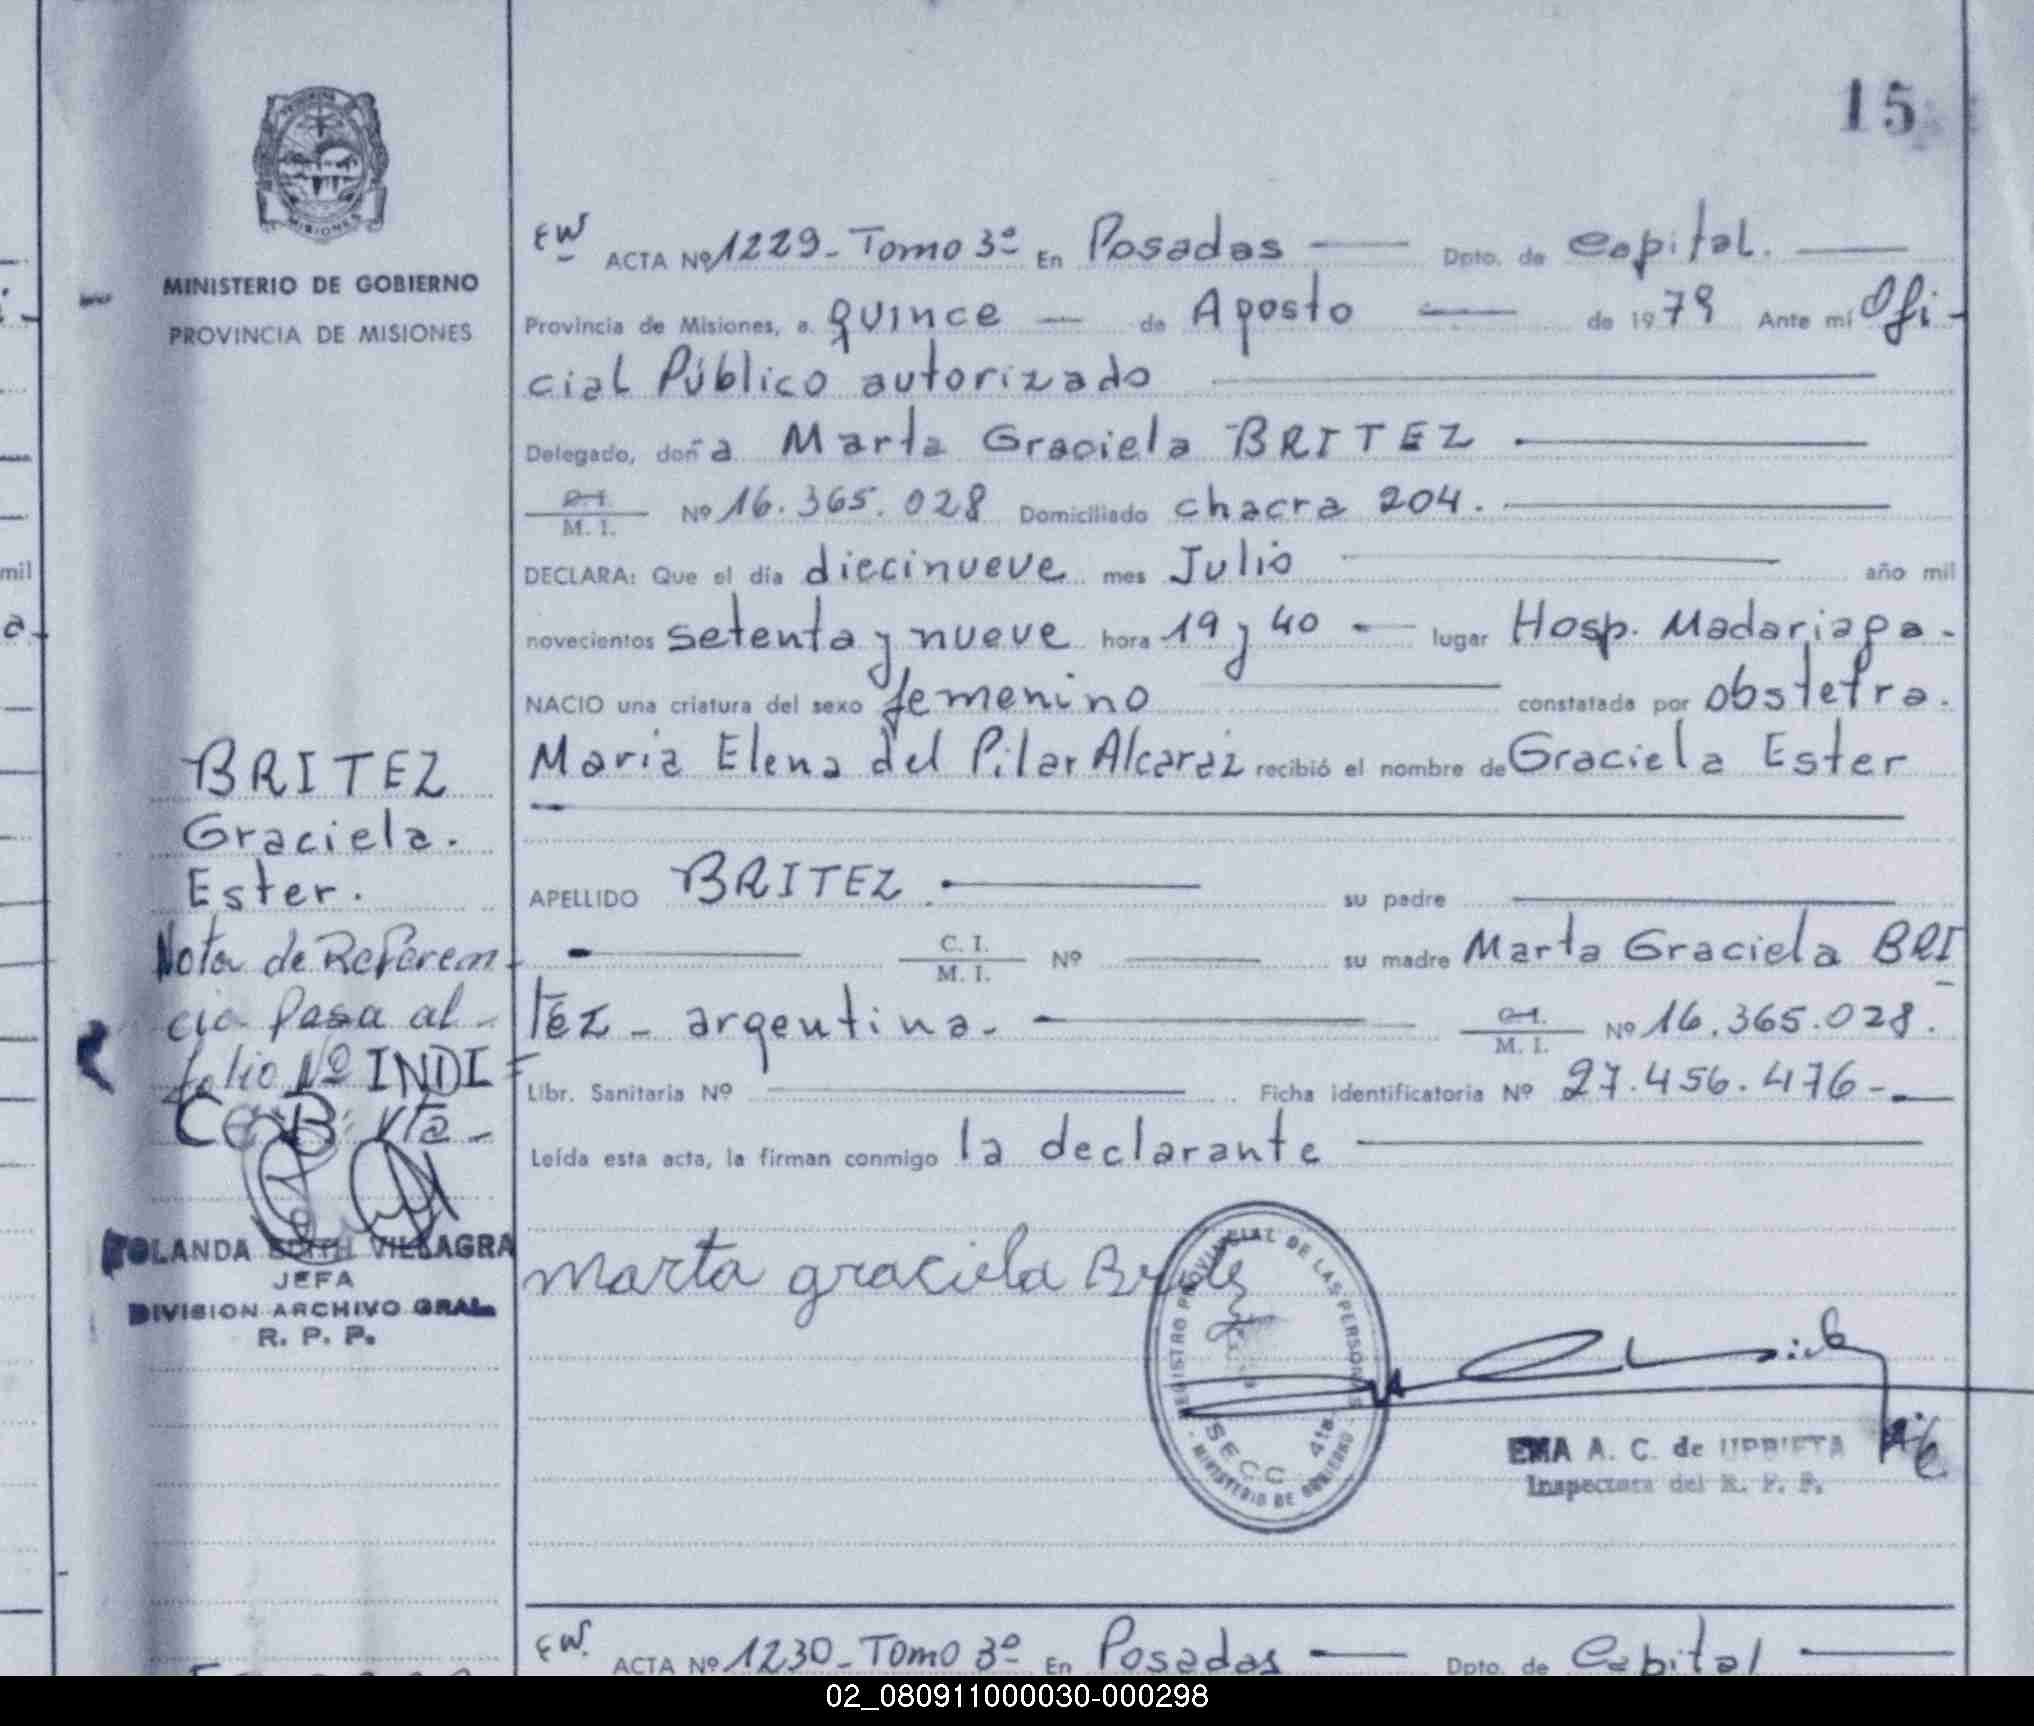 15
MINISTERIO DE GOBIERNO
PROVINCIA DE MISIONES
MISIONES
EW ACTA Nº 1229 - Tomo 3º En Posadas — Dpto. de Capital. —
Provincia de Misiones, a quince — de Agosto — de 1979 Ante mí Ofi-
cial Público autorizado —
Delegado, doña Marta Graciela BRITEZ —
C.I. M. I. Nº 16.365.028 Domiciliado chacra 204. —
DECLARA: Que el día diecinueve mes Julio — año mil
novecientos setenta y nueve hora 19 y 40 — lugar Hosp. Madariaga -
NACIO una criatura del sexo femenino — constatada por obstetra.
Maria Elena del Pilar Alcaráz recibió el nombre de Graciela Ester
APELLIDO BRITEZ. — su padre —
— C. I. M. I. Nº — su madre Marta Graciela BRI
TEZ - argentina. — C.I. M. I. Nº 16.365.028.
Libr. Sanitaria Nº — Ficha identificatoria Nº 27.456.476 - —
Leída esta acta, la firman conmigo la declarante —
BRITEZ
Graciela.
Ester.
Nota de Referen
cia pasa al -
folio Nº INDI
CE "B" Vta -
YOLANDA EDITH VILLAGRA
JEFA
DIVISION ARCHIVO GRAL.
R. P. P.
marta graciela Britez
REGISTRO PROVINCIAL DE LAS PERSONAS
SECC. 4ta.
MINISTERIO DE GOBIERNO
EMA A. C. de URRIETA
Inspectora del R. P. P.
EW. ACTA Nº 1230 - Tomo 3º En Posadas — Dpto. de Capital —
mil
a
02_080911000030-000298